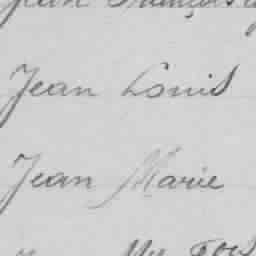 Jean François
Jean Louis
Jean Marie